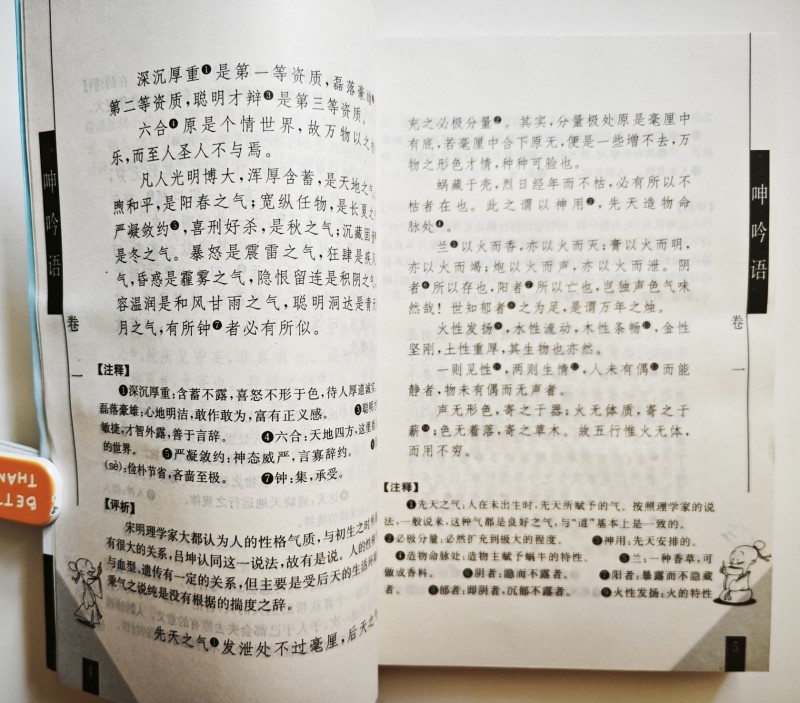 深沉厚重❶是第一等资质，磊落豪雄❷
第二等资质，聪明才辩❸是第三等资质。
六合❹原是个情世界，故万物以之
乐，而至人圣人不与焉。
凡人光明博大，浑厚含蓄，是天地之气
煦和平，是阳春之气；宽纵任物，是长夏之
严凝敛约❺，喜刑好杀，是秋之气；沉藏固
是冬之气。暴怒是震雷之气，狂肆是疾
气，昏惑是霾雾之气，隐恨留连是积阴之气
容温润是和风甘雨之气，聪明洞达是青
月之气，有所钟❼者必有所似。
【注释】
❶深沉厚重：含蓄不露，喜怒不形于色，待人厚道诚实
磊落豪雄：心地明洁，敢作敢为，富有正义感。 ❸聪明
敏捷，才智外露，善于言辞。 ❹六合：天地四方，这里
的世界。 ❺严凝敛约：神态威严，言寡辞约。
(sè)：俭朴节省，吝啬至极。 ❼钟：集，承受。
【评析】
宋明理学家大都认为人的性格气质，与初生之时
有很大的关系，吕坤认同这一说法，故有是说。人的性
与血型、遗传有一定的关系，但主要是受后天的生活
秉气之说纯是没有根据的揣度之辞。
先天之气❶发泄处不过毫厘，后天之
呻吟语
卷一
4
BETT
THAN
充之必极分量❷。其实，分量极处原是毫厘中
有底，若毫厘中合下原无，便是一些增不去，万
物之形色才情，种种可验也。
蜗藏于壳，烈日经年而不枯，必有所以不
枯者在也。此之谓以神用❸，先天造物命
脉处❹。
兰❺以火而香，亦以火而灭；膏以火而明，
亦以火而竭；炮以火而声，亦以火而泄。阴
者❻所以存也，阳者❼所以亡也，岂独声色气味
然哉！世知郁者❽之为足，是谓万年之烛。
火性发扬❾，水性流动，木性条畅，金性
坚刚，土性重厚，其生物也亦然。
一则见性，两则生情，人未有偶而能
静者，物未有偶而无声者。
声无形色，寄之于器；火无体质，寄之于
薪；色无着落，寄之草木。故五行惟火无体，
而用不穷。
【注释】
❶先天之气：人在未出生时，先天所赋予的气。按照理学家的说
法，一般说来，这种气都是良好之气，与“道”基本上是一致的。
❷必极分量：必然扩充到极大的程度。 ❸神用：先天安排的。
❹造物命脉处：造物主赋予蜗牛的特性。 ❺兰：一种香草，可
做成香料。 ❻阴者：隐而不露者。 ❼阳者：暴露而不隐藏
者。 ❽郁者：即阴者，沉郁不露者。 ❾火性发扬：火的特性
呻吟语
卷一
5